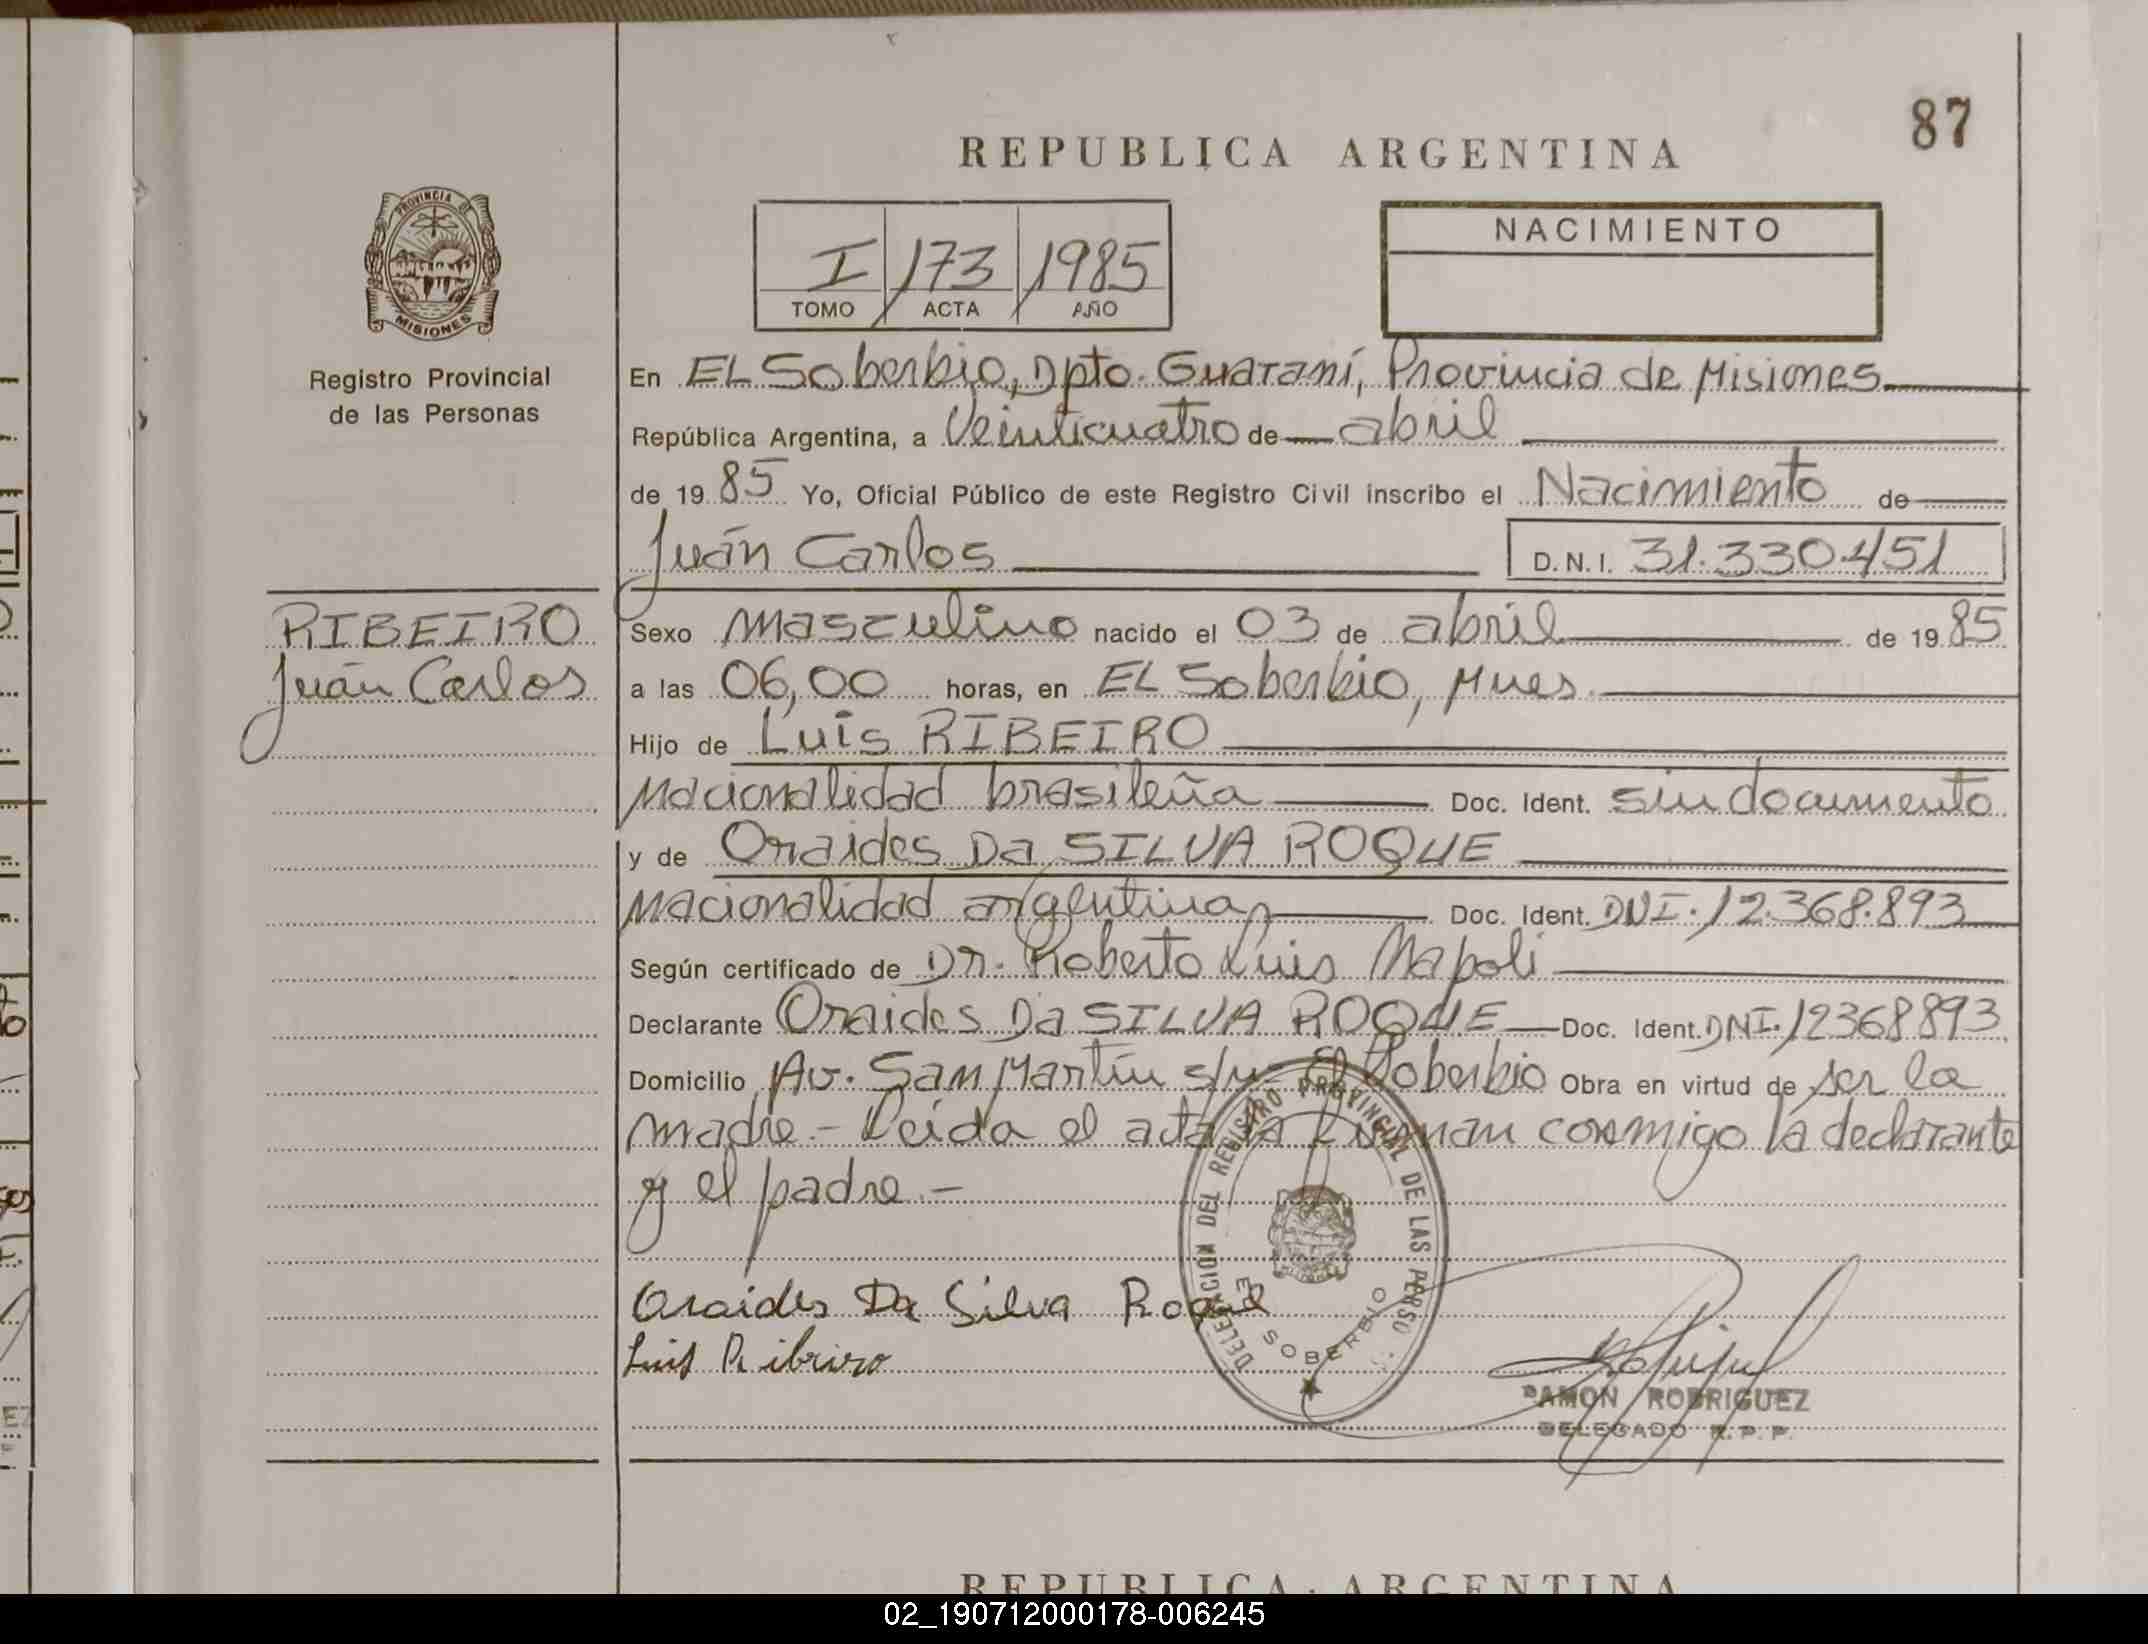 87
REPUBLICA ARGENTINA
PROVINCIA DE
MISIONES
Registro Provincial
de las Personas
I 173 1985
TOMO ACTA AÑO
NACIMIENTO
En EL Soberbio, Dpto. Guaraní, Provincia de Misiones
República Argentina, a Veinticuatro de abril
de 1985 Yo, Oficial Público de este Registro Civil inscribo el Nacimiento de
Juán Carlos D.N.I. 31.330.451
RIBEIRO
Juán Carlos
Sexo masculino nacido el 03 de abril de 1985
a las 06,00 horas, en EL Soberbio, Mnes.
Hijo de Luis RIBEIRO
nacionalidad brasileña Doc. Ident. sin documento
y de Oraides Da SILVA ROQUE
nacionalidad argentina Doc. Ident. DNI. 12.368.893
Según certificado de Dr. Roberto Luis Napoli
Declarante Oraides Da SILVA ROQUE Doc. Ident. DNI. 12368893
Domicilio Av. San Martín s/n- El Soberbio Obra en virtud de ser la
madre.- Leída el acta la firman conmigo la declarante
y el padre.-
DELEGACION DEL REGISTRO PROVINCIAL DE LAS PERSO
EL SOBERBIO
Oraides Da Silva Roque
Luis Ribeiro
RAMON RODRIGUEZ
DELEGADO R.P.P.
REPUBLICA ARGENTINA
02_190712000178-006245